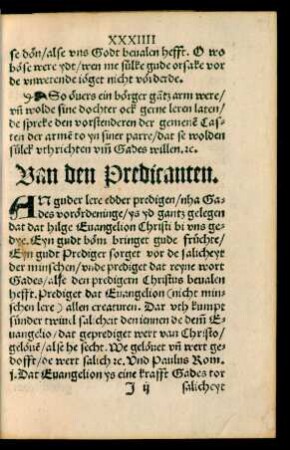 XXXIIII
se dön/alse vns Godt beualen hefft. O wo
böse were ydt/wen me sülke gude orsake vor
de vnwetende iöget nicht vörderde.
So öuers ein börger gātz arm were/
vñ wolde sine dochter ock gerne leren laten/
de spreke den vorstenderen der gemenē Cas-
ten der armē to yn siner parre/dat se wolden
sülck vthrichten vm̄ Gades willen.ꝛc.
Van den Predicanten.
AN guder lere edder predigen/nha Ga-
des vorördeninge/ys yd gantz gelegen
dat dat hilge Euangelion Christi bi vns ge-
dye. Eyn gudt böm bringet gude früchte/
Eyn gudt Prediger sorget vor de salicheyt
der minschen/vnde prediget dat reyne wort
Gades/alse den predigern Christus beualen
hefft. Prediget dat Euangelion (nicht min-
schen lere) allen creaturen. Dar vth kumpt
sünder twiuel salichat den iennen de dem̄ Eu-
angelio/dat geprediget wert van Christo/
gelöuē/alse he secht. We gelöuet vñ wert ge-
dofft/de wert salich ꝛc. Vnd Paulus Rom.
j. Dat Euangelion ys eine krafft Gades tor
J ij
salicheyt